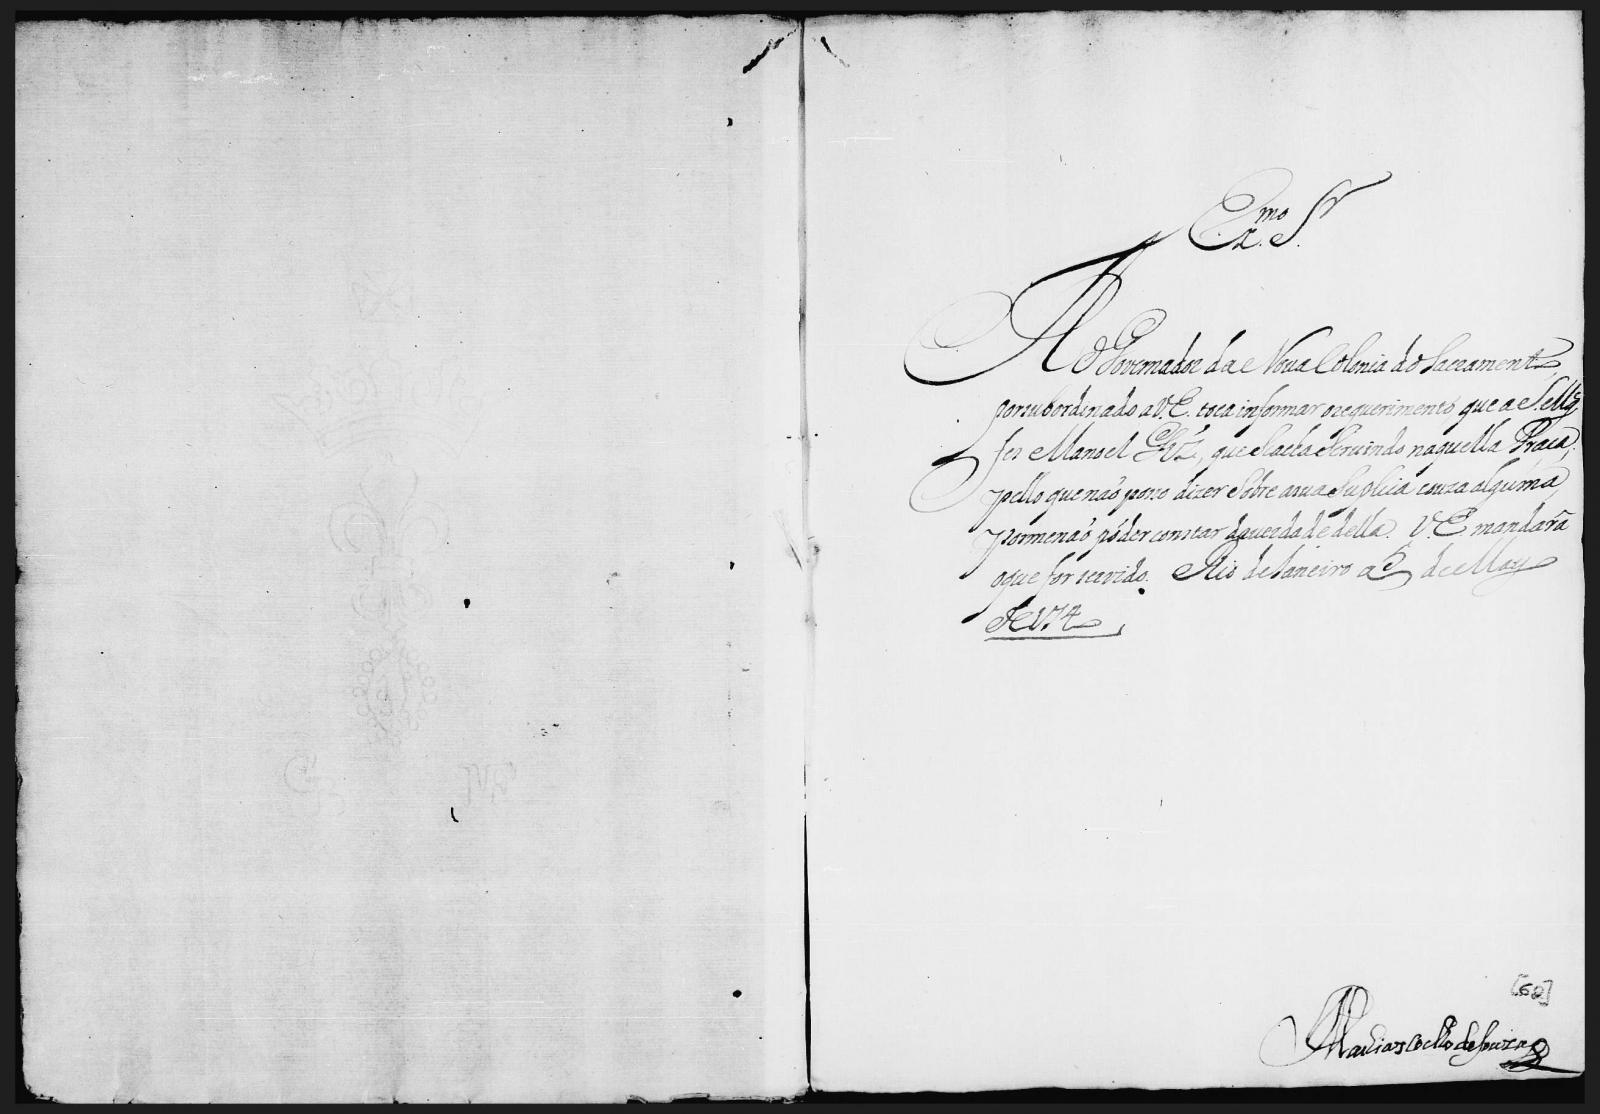 Ex.mo S.r
Ao Governador da Nova Colonia do Sacramento,
por subordinado a V.E. toca informar o requerimento que a S. Mg.e
fes Manoel Glz, que se acha servindo naquella Praça;
pello que naõ posso dizer sobre a sua suplica couza algúma,
por me naõ póder constar da verdade della. V.E. mandarâ
o que for servido. Rio de Janeiro a 5 de Mayo
de 174
[60]
Mathias Coelho de Souza